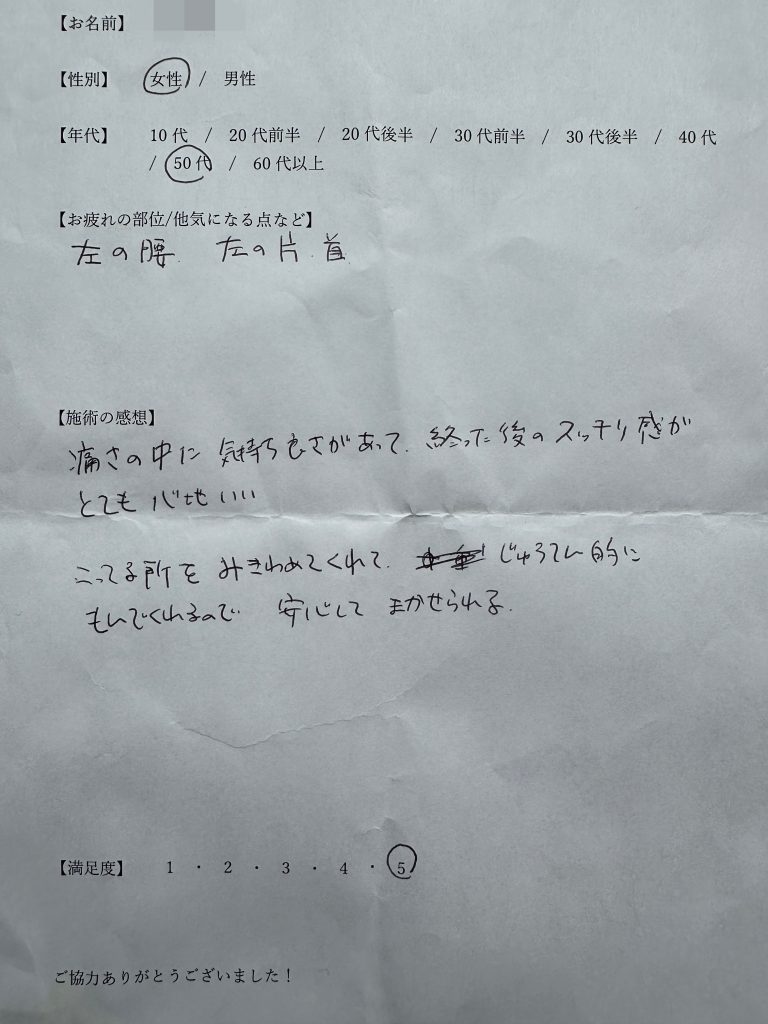 【お名前】
【性別】 女性 / 男性
【年代】 10代 / 20代前半 / 20代後半 / 30代前半 / 30代後半 / 40代
/ 50代 / 60代以上
【お疲れの部位/他気になる点など】
左の腰. 左の片.首
【施術の感想】
痛さの中に気持ち良さがあって.終った後のスッキリ感が
とても心地いい
こってる所をみきわめてくれて. じゅうてん的に
もんでくれるので 安心して まかせられる.
【満足度】 1 ・ 2 ・ 3 ・ 4 ・ 5
ご協力ありがとうございました！